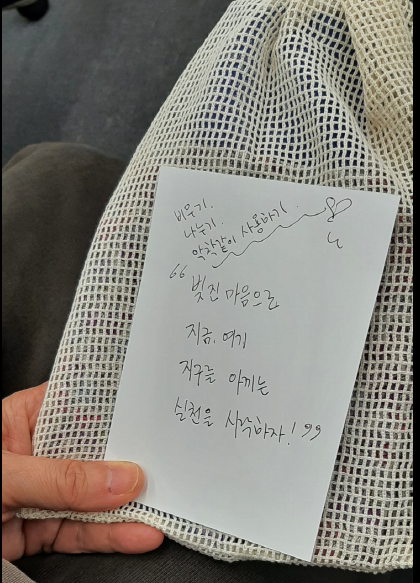 비우기.
나누기.
악착같이 사용하기.
"빚진 마음으로
지금, 여기
지구를 아끼는
실천을 시작하자!"